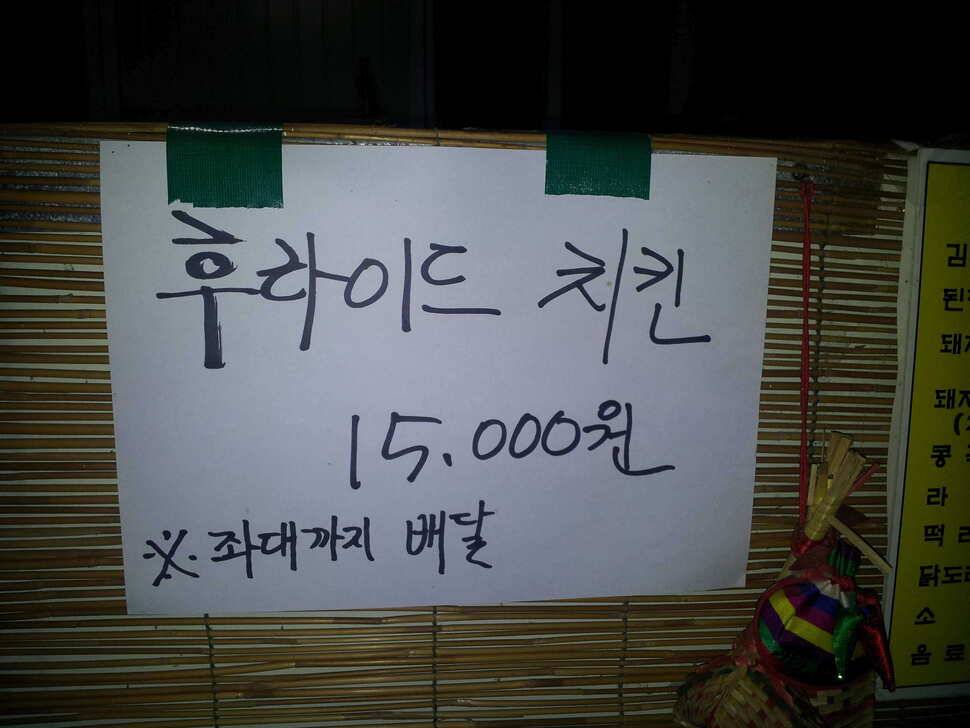 후라이드 치킨
15.000원
※.좌대까지 배달
김
된
돼지
돼지
콩
라
떡
닭도리
소
음료